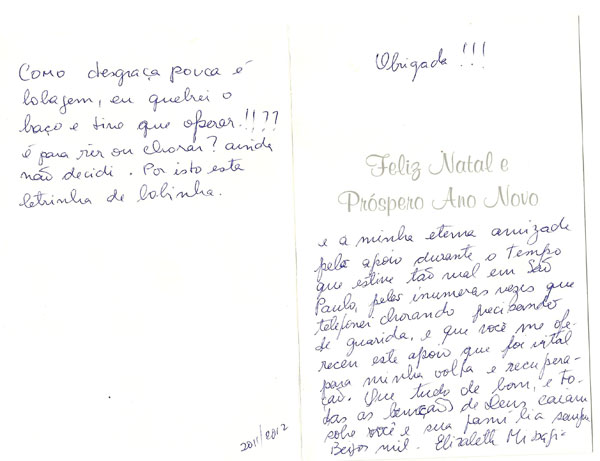 Como desgraça pouca é
bobagem, eu quebrei o
braço e tive que operar!!??
é para rir ou chorar? ainda
não decidi. Por isto esta
letrinha de bolinha.
2011/2012
Obrigada!!!
Feliz Natal e
Próspero Ano Novo
e a minha eterna amizade
pelo apoio durante o tempo
que estive tão mal em São
Paulo, pelas inumeras vezes que
telefonei chorando precisando
de guarida, e que você me ofe-
receu este apoio que foi vital
para minha volta e recupera-
ção. Que tudo de bom, e To-
das as benções de Deus caiam
sobre você e sua família sempre
Beijos mil. Elizabeth